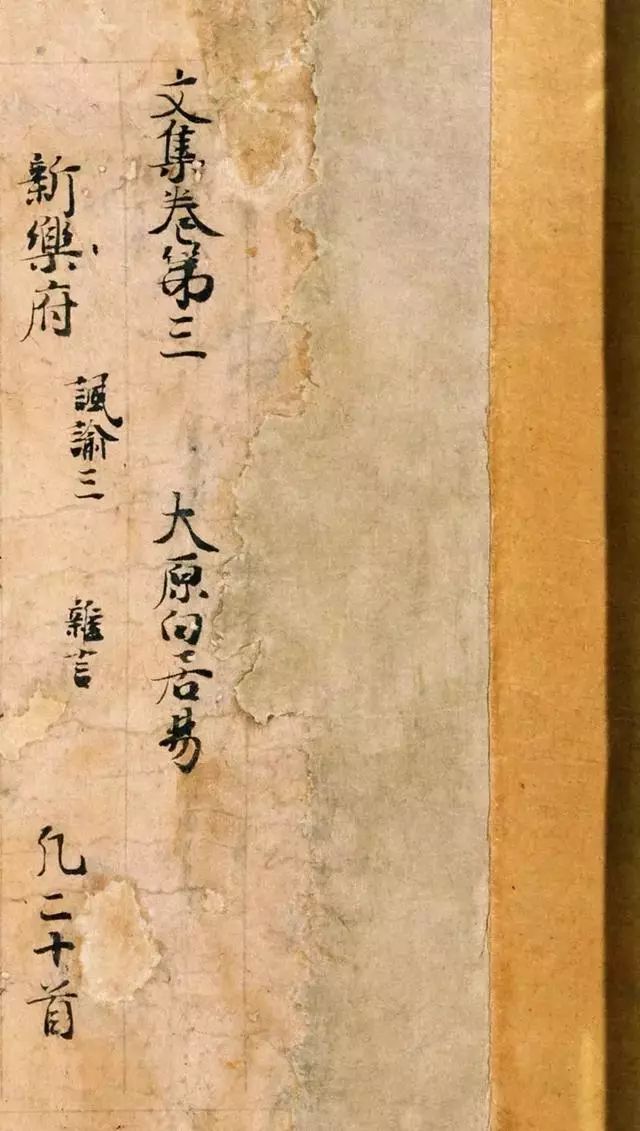 文集卷第三 大原白居易
新樂府 諷諭三 雜言 凡二十首